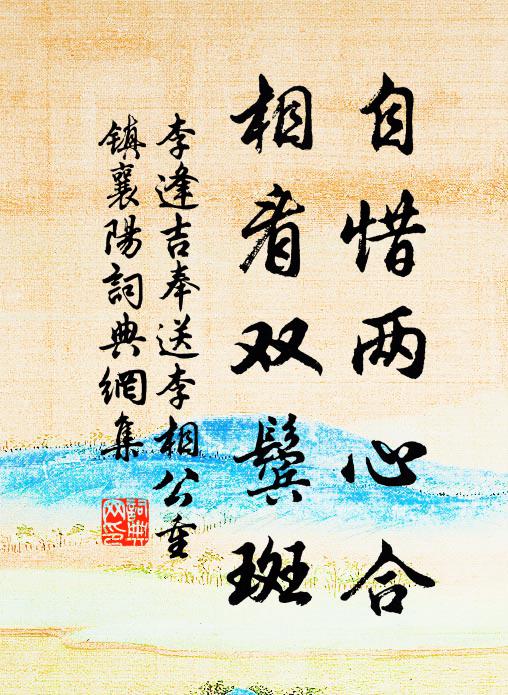 自惜两心合
相看双鬓斑
李逢吉奉送李相公重
镇襄陽詞典網集